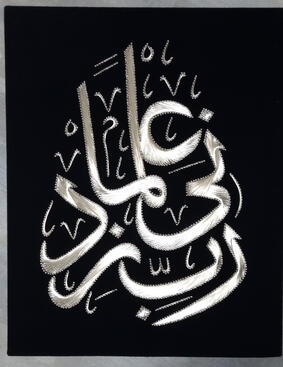 رب زدنی علما